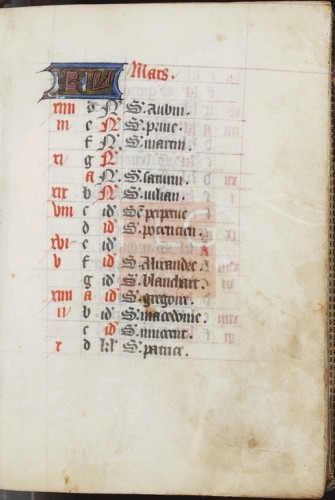 KL Mars.
xiiii d N S. Aubin.
iii e N S. prive.
f N S. martin.
xi g N
a N. S. saturni.
xix b N S. iulian.
viii c id Se perpetue
d id S. potencien.
xvi e id
v f id S. Alixandre.
g id S. blanchart.
xiiii a id S. gregoire.
ii b id S. macedone.
c id S. innocent.
x d kl S. patrice.